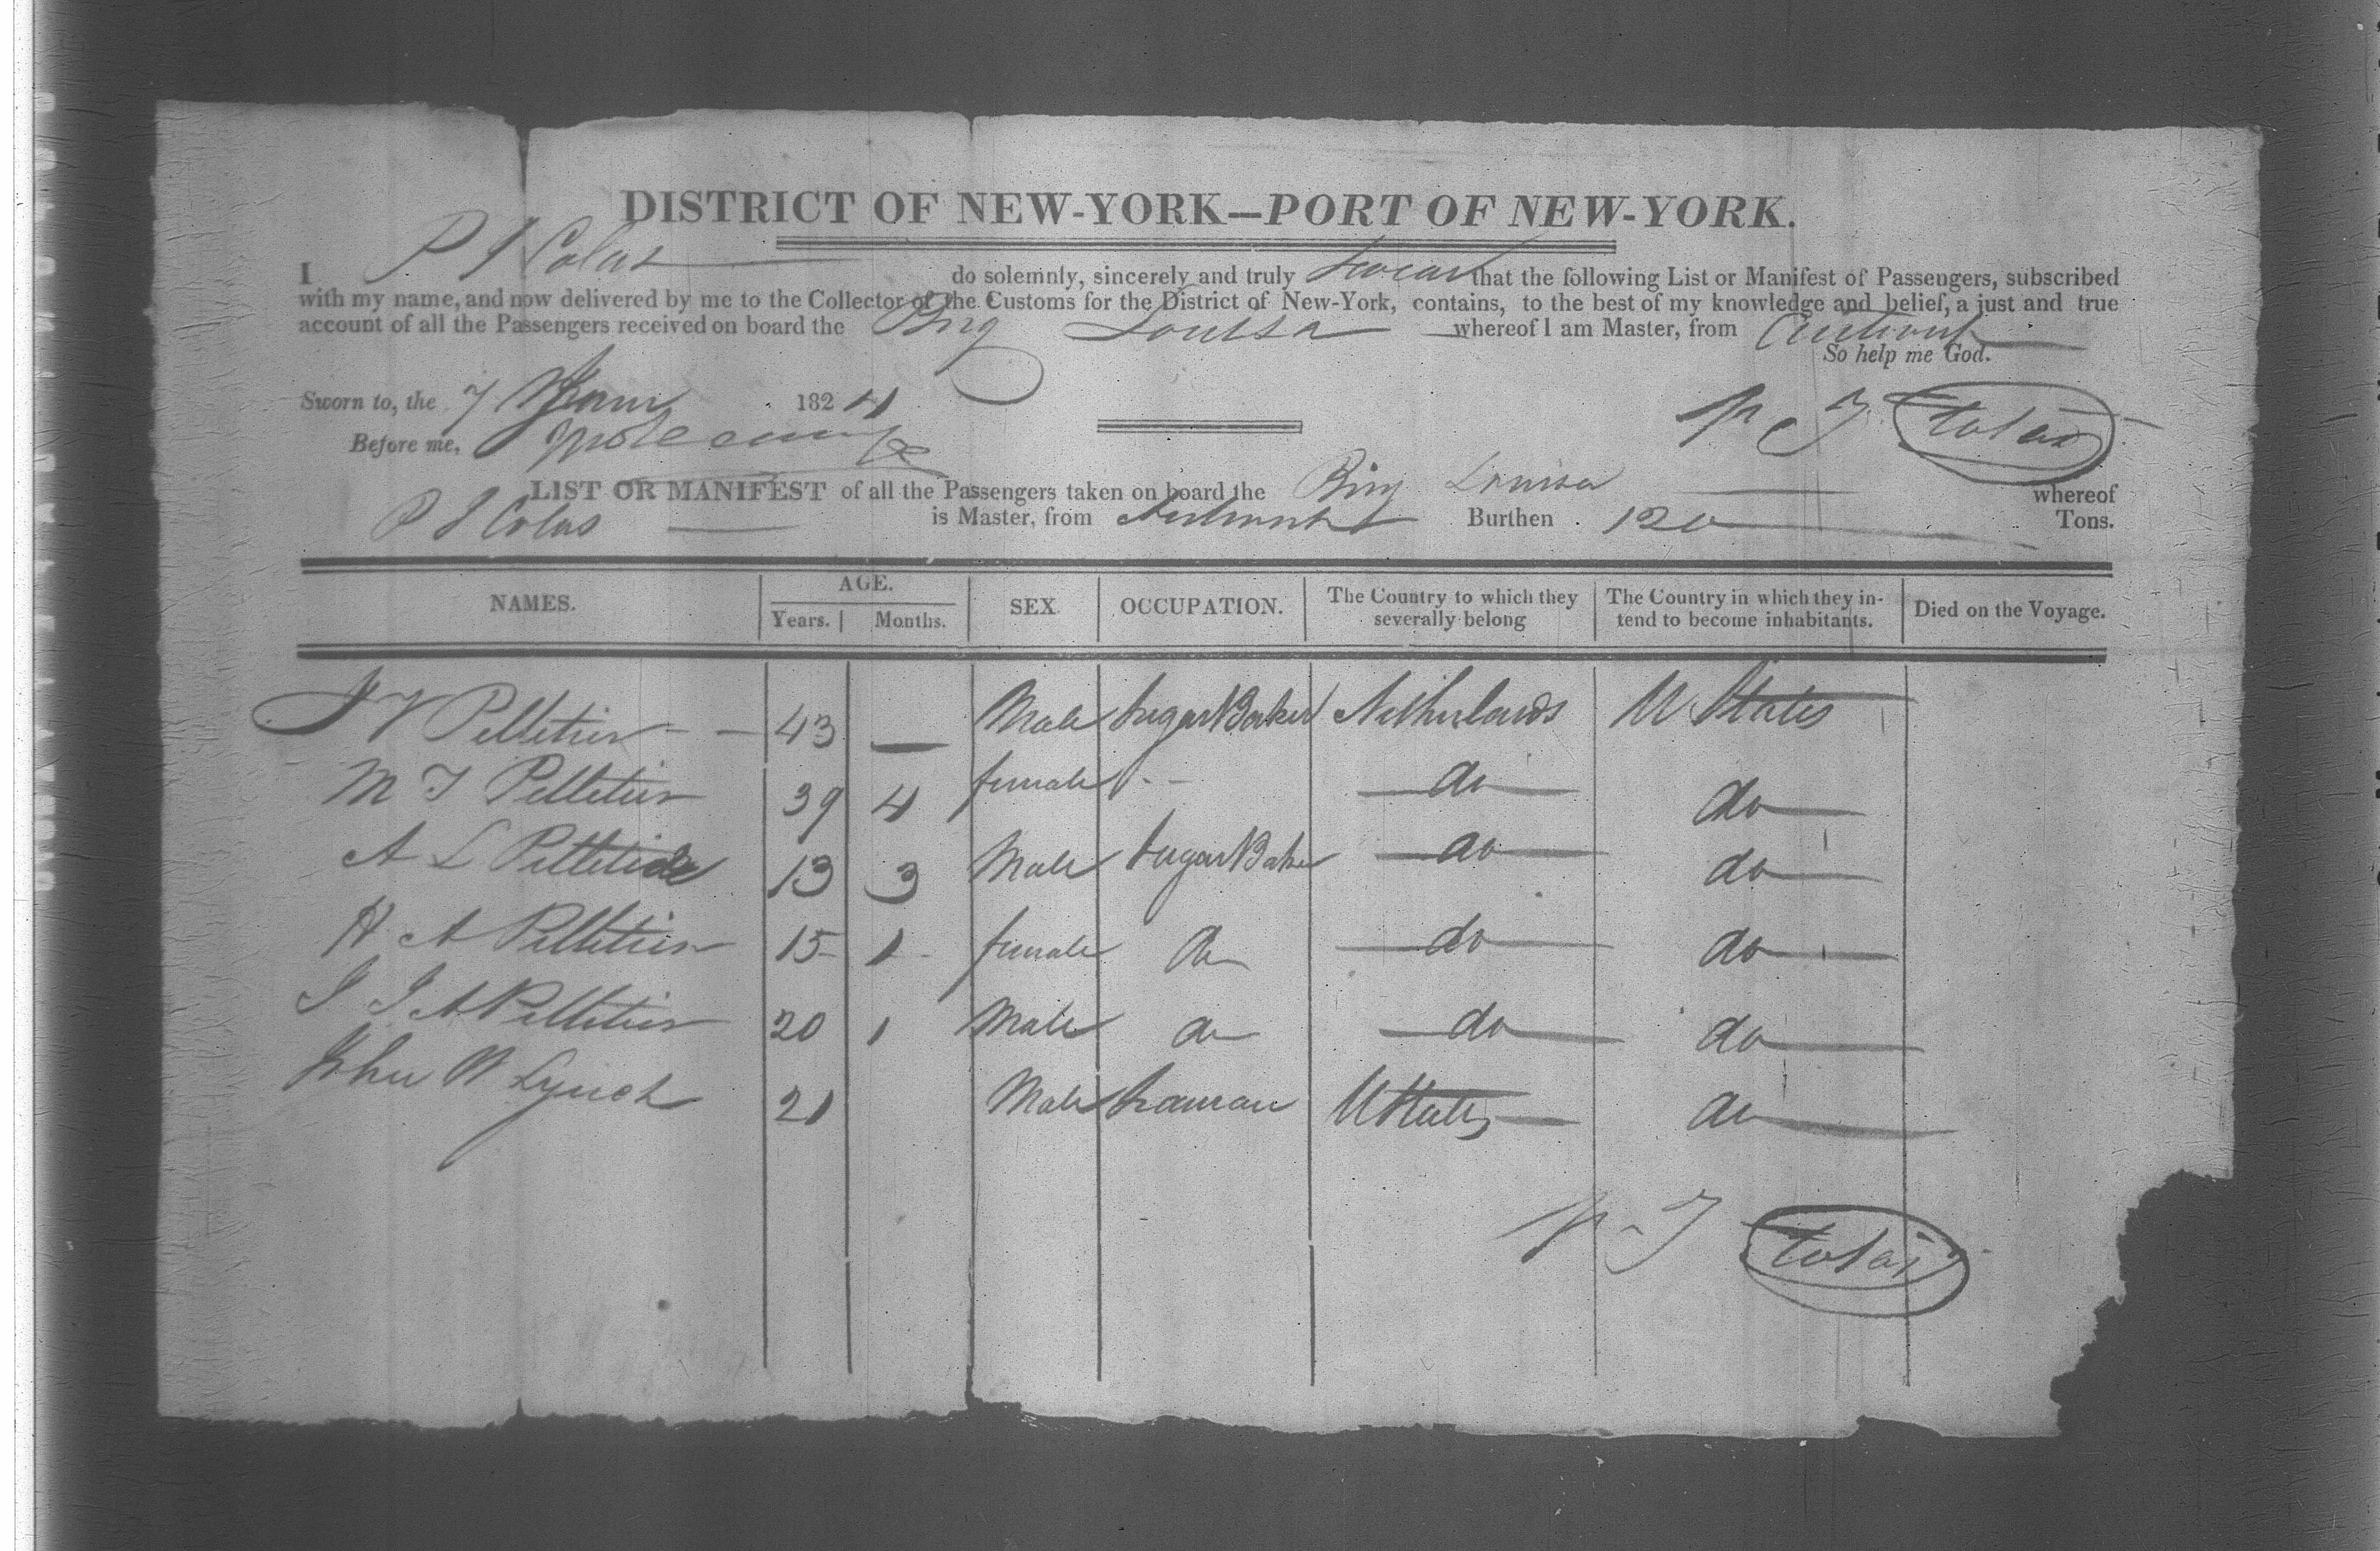 DISTRICT OF NEW-YORK—PORT OF NEW-YORK.
I P J Colas do solemnly, sincerely and truly swear that the following List or Manifest of Passengers, subscribed
with my name, and now delivered by me to the Collector of the Customs for the District of New-York, contains, to the best of my knowledge and belief, a just and true
account of all the Passengers received on board the Brig Louisa whereof I am Master, from
So help me God.
Sworn to, the 7 1824
Before me,
P J Colas
LIST OR MANIFEST of all the Passengers taken on board the Brig Louisa whereof
P J Colas is Master, from Burthen 120 Tons.
NAMES. AGE. SEX OCCUPATION. The Country to which they severally belong The Country in which they intend to become inhabitants. Died on the Voyage.
Years. Months.
Pelletier 43 — Male Sugar Baker Netherlands U States
M J Pelletier 39 4 female -- do do
A L Pelletier 13 3 Male Sugar Baker do do
H A Pelletier 15 1 female do do do
J J A Pelletier 20 1 Male do do do
John W Lynch 21 Male Seaman U States do
P J Colas